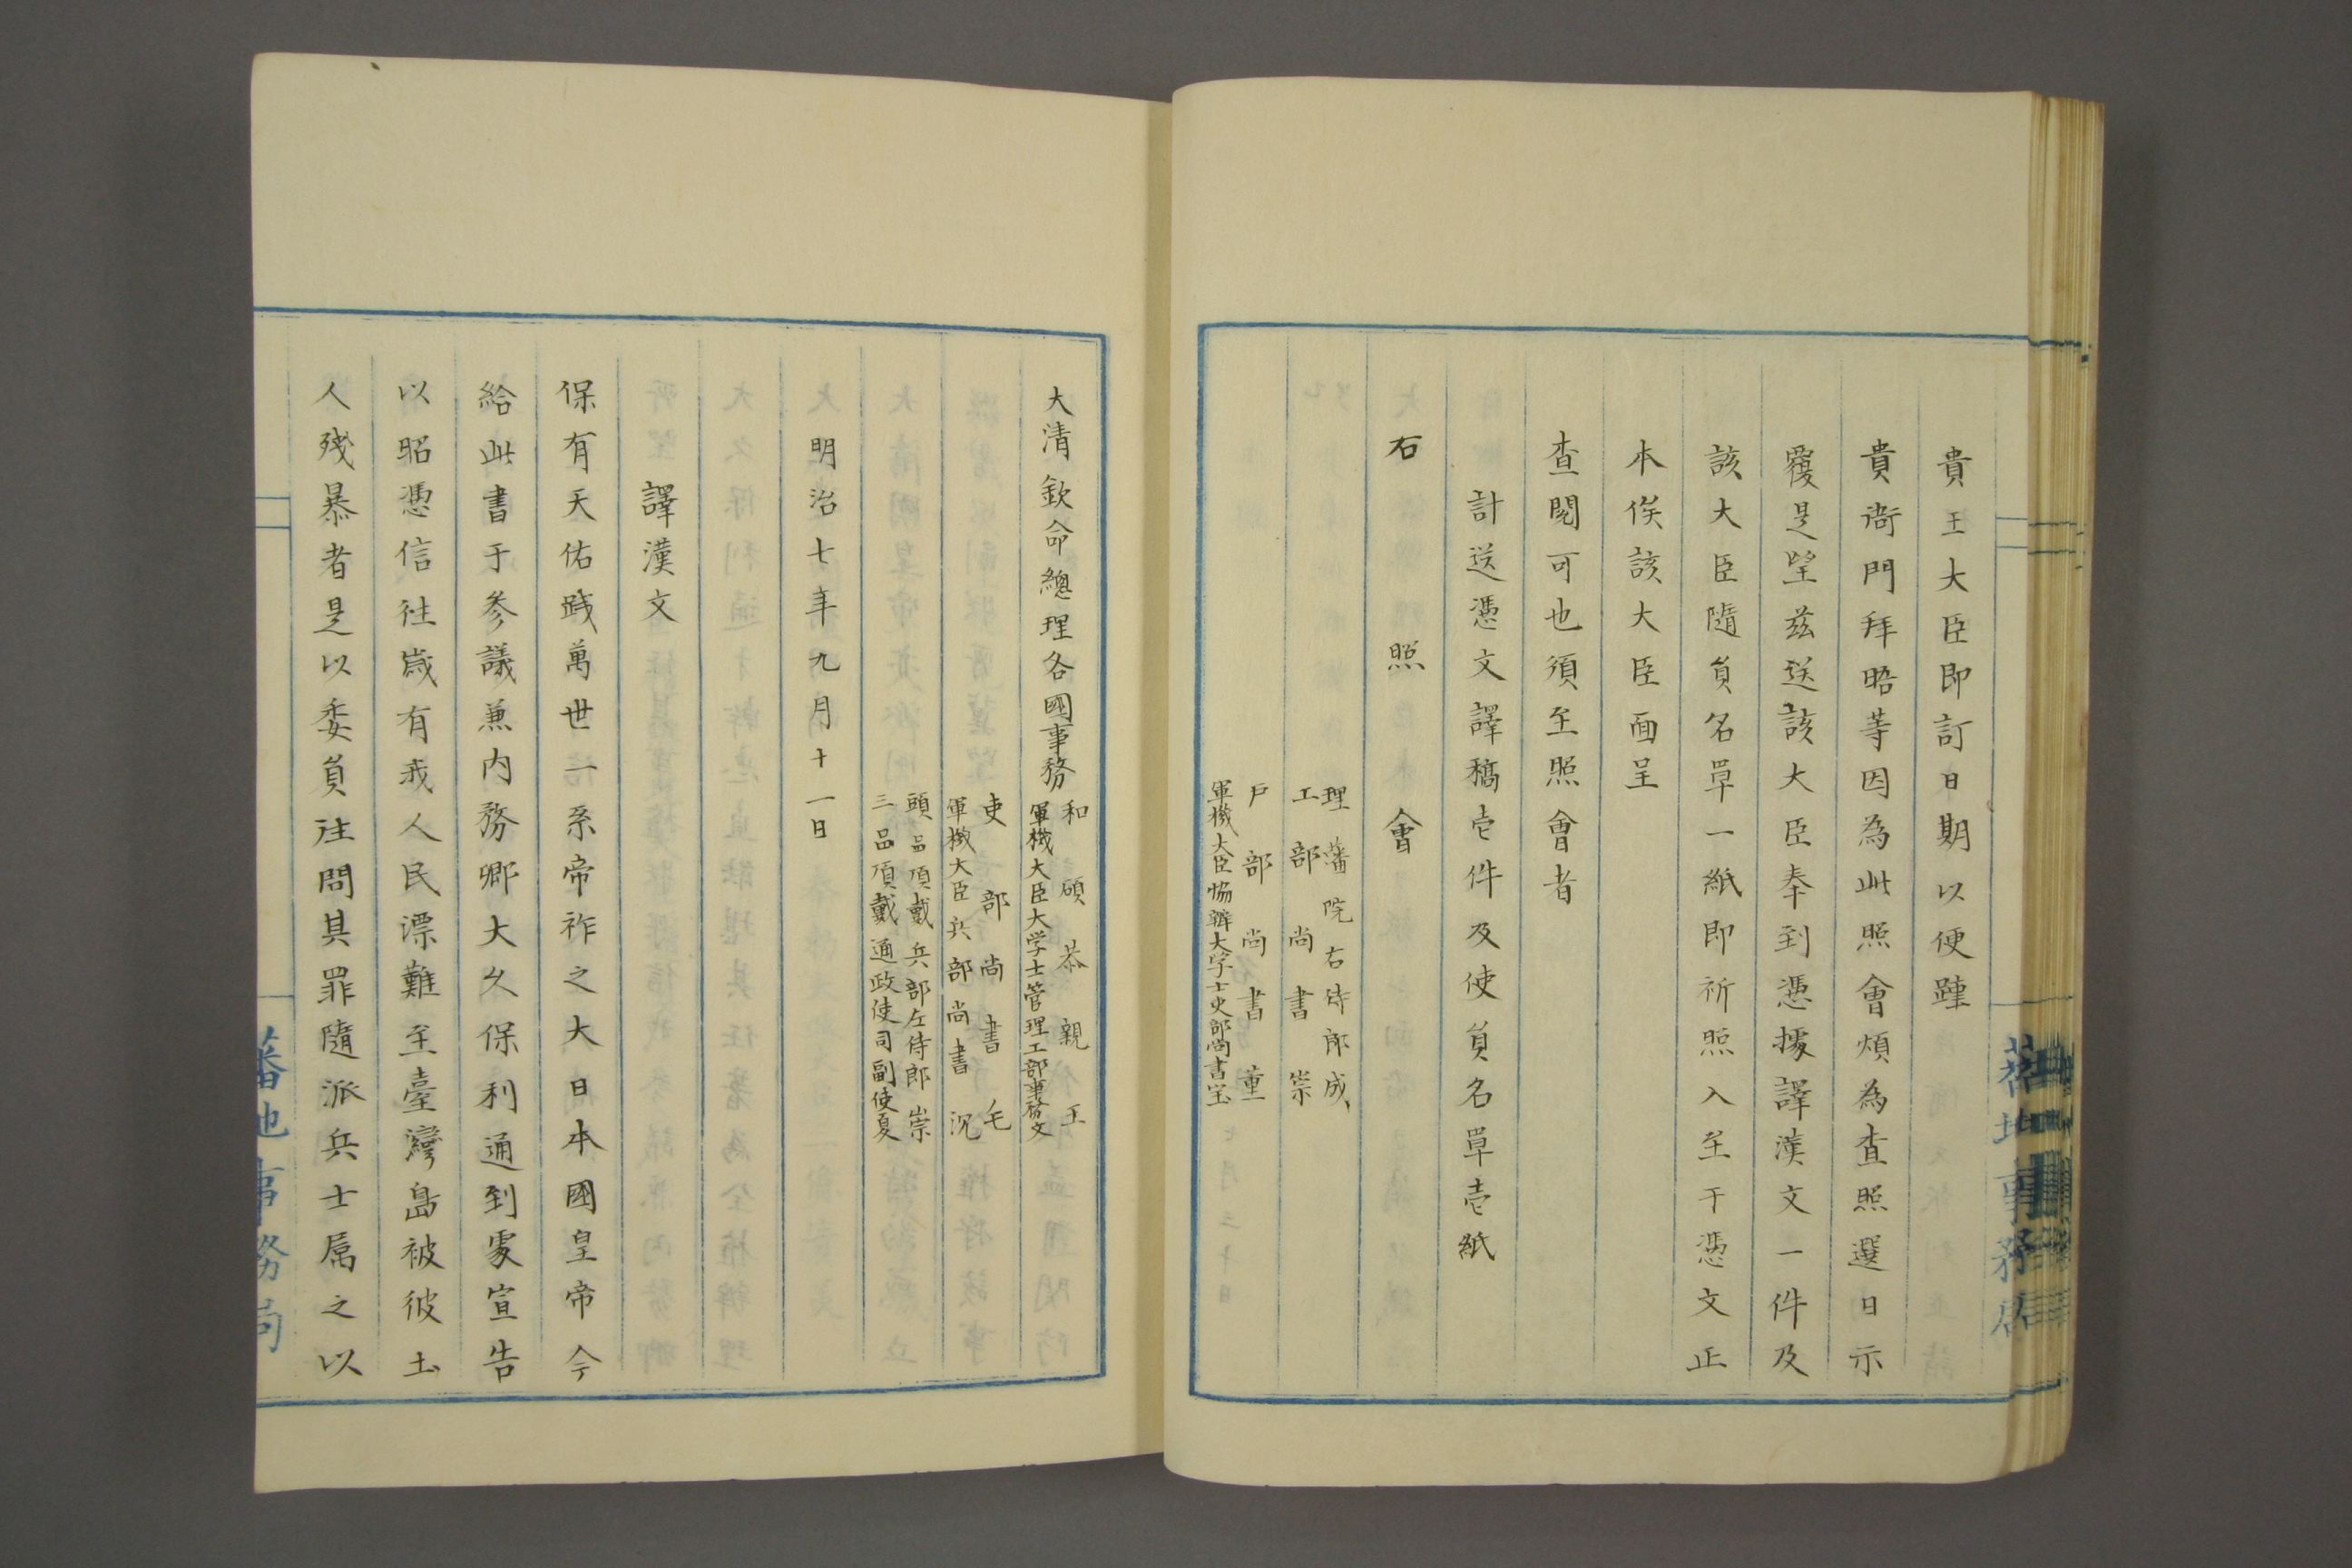 貴王大臣即訂日期以便踵
貴衙門拜晤等因為此照會煩為查照選日示
覆是望茲送該大臣奉到憑據譯漢文一件及
該大臣隨員名單一紙即祈照入至于憑文正
本俟該大臣面呈
查閱可也須至照會者
計送憑文譯稿壱件及使員名單壱紙
右照會
理藩院右侍郎成
工部尚書崇
戸部尚書董
軍機大臣協辦大学士吏部尚書宝
大清欽命總理各國事務
和碩恭親王
軍機大臣大学士管理工部事務文
吏部尚書毛
軍機大臣兵部尚書沈
頭品頂戴兵部左侍郎崇
三品頂戴通政使司副使夏
明治七年九月十一日
譯漢文
保有天佑践萬世一系帝祚之大日本國皇帝今
給此書于参議兼内務卿大久保利通到處宣告
以昭憑信往歳有我人民漂難至臺灣島被彼土
人殘暴者是以委員往問其罪隨派兵士属之以
蕃地事務局
蕃地事務局